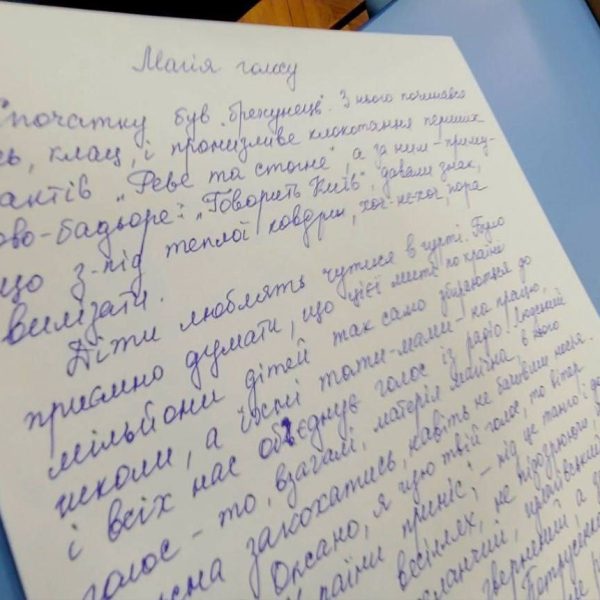 Магія голосу
Спочатку був „брехунець". З нього почишався
сь, клац, і пронизливе клокотання перших
актів „Реве та стогне", а за ним – приму-
ово-бадьоре: „Говорить Київ", давали знак,
що з-під теплої ковдри, хоч-не-хоч, пора
вилізати.
Діти люблять чутися в гурті. Було
приємно думати, що цієї миті по країні
мільйони дітей так само збираються до
школи, а їхні тати-мами на працю,
і всіх нас об'єднує голос із радіо. Людський
голос – то, взагалі, матерія магічна, в нього
сна закохатись, навіть не бачивши носія.
Оксано, я чую твій голос, то вітер
країни приніс", – під це танго і до
весіллях, не підозрюючи,
еланчий, український
звернений а з
Петрусенко